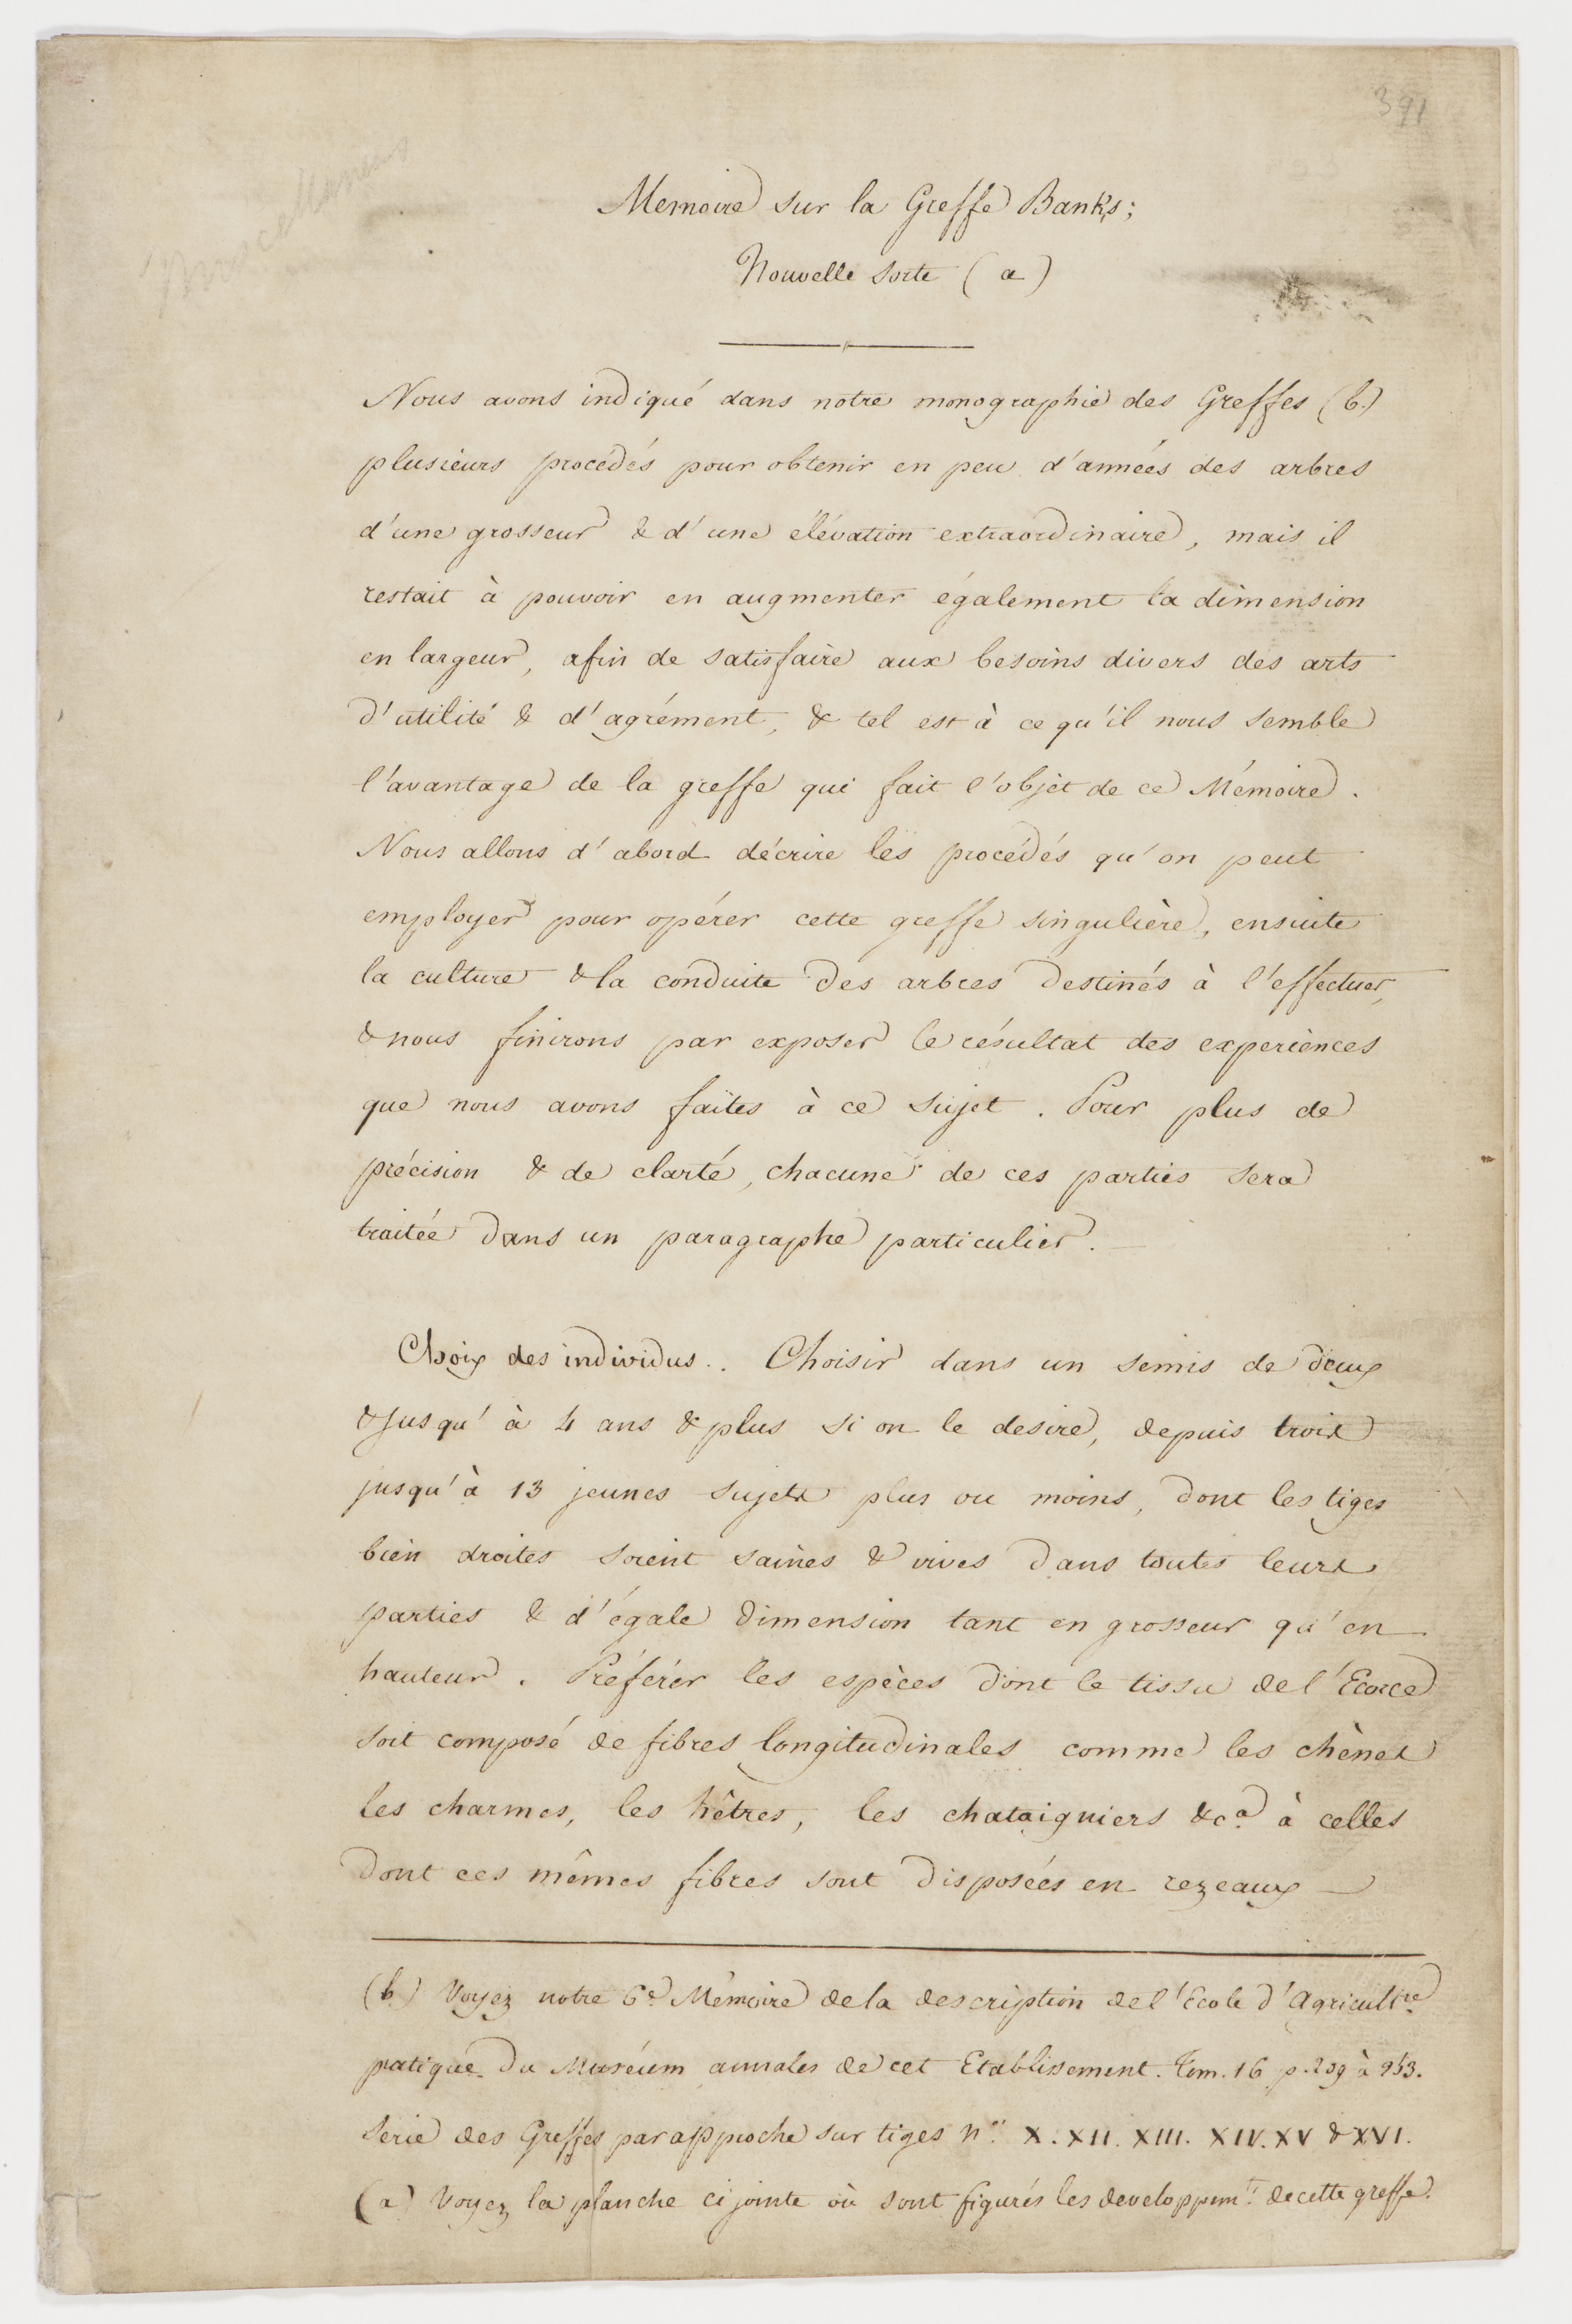 391
Memoire sur la Greffe Banks;
Nouvelle sorte (a)
Nous avons indiqué dans notre monographie des Greffes (b.)
plusieurs procédés pour obtenir en peu d'années des arbres
d'une grosseur & d'une élévation extraordinaire, mais il
restait à pouvoir en augmenter également la dimension
en largeur, afin de satisfaire aux besoins divers des arts
d'utilité & d'agrément, & tel est à ce qu'il nous semble
l'avantage de la greffe qui fait l'objet de ce Mémoire.
Nous allons d'abord décrire les procédés qu'on peut
employer pour opérer cette greffe singulière, ensuite
la culture & la conduite des arbres destinés à l'effectuer,
& nous finirons par exposer le résultat des experiences
que nous avons faites à ce sujet. Pour plus de
précision & de clarté, chacune de ces parties sera
traitée dans un paragraphe particulier.
Choix des individus.. Choisir dans un semis de deux
& jusqu'à 4 ans & plus si on le desire, depuis trois
jusqu'à 13 jeunes sujets plus ou moins, dont les tiges
bien droites soient saines & vives dans toutes leurs
parties & d'égale dimension tant en grosseur qu'en
hauteur. Préférer les espèces dont le tissu de l'Ecorce
soit composé de fibres longitudinales comme les chènes
les charmes, les hêtres, les chataigniers &ca. à celles
dont ces mêmes fibres sont disposées en rezeaux
(b.) Voyez notre 6e. Mémoire de la description de l'Ecole d'Agricultre
pratique du Muséum annales de cet Etablissement. Tom. 16 p. 209 à
Serie des Greffes par approche sur tiges nos. X. XII. XIII. XIV. XV & XVI.
(a) Voyez la planche ci jointe où sont figurés les developpemts. de cette greffe.